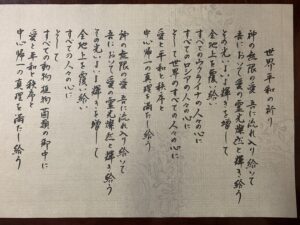 世界平和の祈り
神の無限の愛 吾に流れ入り給いて
吾において愛の霊光燦然と輝き給う
その光いよいよ輝きを増して
全地上を覆い給い
すべてのウクライナの人々の心に
すべてのロシアの人々の心に
そして世界のすべての人々の心に
愛と平和と秩序と
中心帰一の真理を満たし給う
神の無限の愛 吾に流れ入り給いて
吾において愛の霊光燦然と輝き給う
その光いよいよ輝きを増して
全地上を覆い給い
すべての人々の心に
そして
すべての動物 植物 菌類の御中に
愛と平和と秩序と
中心帰一の真理を満たし給う